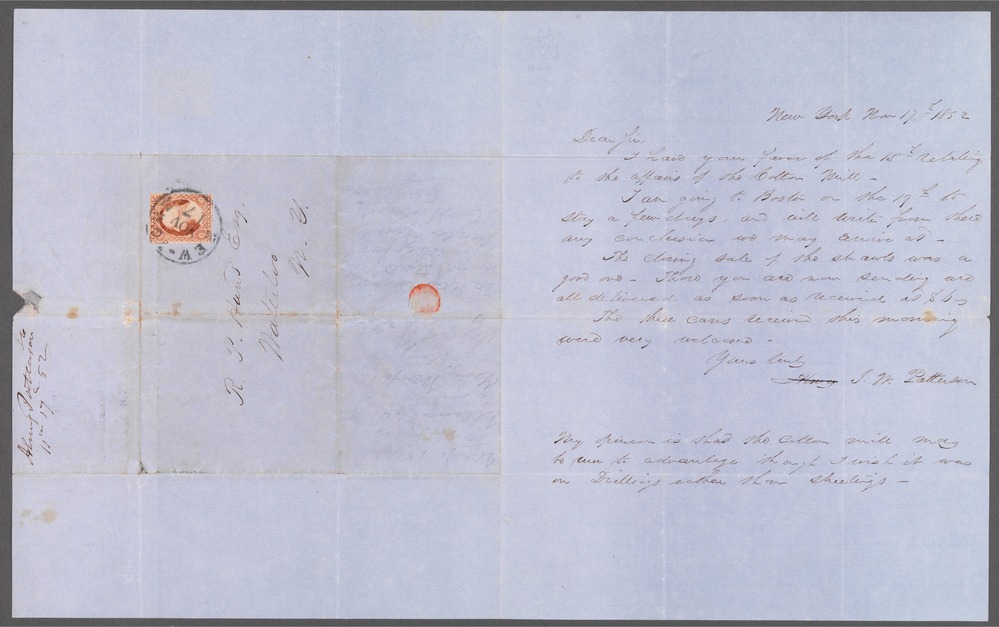 New York Nov 17th 1852
Dear Sir
I have your favor of the 15th relating
to the affairs of the Cotton Mill -
I am going to Boston on the 19th to
stay a few days, and will write from there
any conclusion we may arrive at -
The closing sale of the shawls was a
good one - Those you are now sending are
all delivered as soon as received at
The three cases received this morning
were very welcome -
Yours truly
J. W. Patterson
My opinion is that the Cotton mill may
be run to advantage though I wish it was
on Drillings rather than sheetings -
R. P. Hunt Esq.
Waterloo
N. Y.
NEW
NOV
17
Henry Patterson &Co
11 mo 17 52